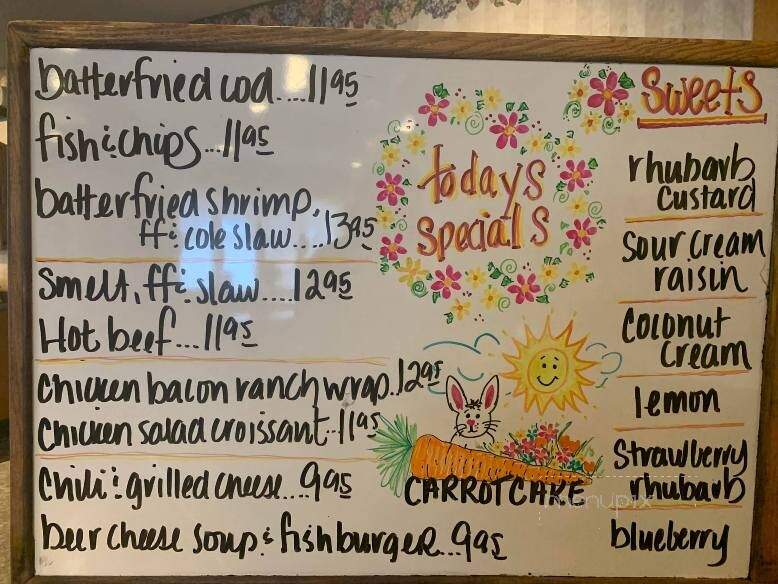 batterfried cod....11 95
fish & chips...11 95
batterfried shrimp,
ff & cole slaw....13 95
Smelt, ff & slaw....12 95
Hot beef...11 95
chicken bacon ranch wrap..12 95
Chicken salad croissant..11 95
Chili & grilled cheese...9 95
beer cheese soup & fishburger...9 95
todays
specials
CARROT CAKE
Sweets
rhubarb
custard
Sour Cream
raisin
Coconut
Cream
lemon
Strawberry
rhubarb
blueberry
menupix